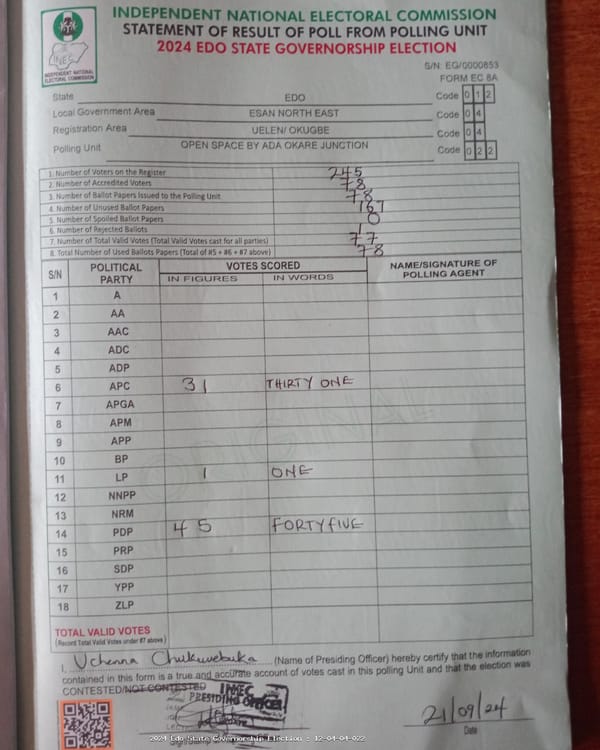 INDEPENDENT NATIONAL ELECTORAL COMMISSION
STATEMENT OF RESULT OF POLL FROM POLLING UNIT
2024 EDO STATE GOVERNORSHIP ELECTION
INEC
INDEPENDENT NATIONAL
ELECTORAL COMMISSION
S/N: EG/0000853
FORM EC 8A
State EDO Code 0 1 2
Local Government Area ESAN NORTH EAST Code 0 4
Registration Area UELEN/ OKUGBE Code 0 4
Polling Unit OPEN SPACE BY ADA OKARE JUNCTION Code 0 2 2
1. Number of Voters on the Register 245
2. Number of Accredited Voters 78
3. Number of Ballot Papers Issued to the Polling Unit 78
4. Number of Unused Ballot Papers 167
5. Number of Spoiled Ballot Papers 0
6. Number of Rejected Ballots 1
7. Number of Total Valid Votes (Total Valid Votes cast for all parties) 77
8. Total Number of Used Ballots Papers (Total of #5 + #6 + #7 above) 78
S/N POLITICAL PARTY VOTES SCORED NAME/SIGNATURE OF POLLING AGENT
IN FIGURES IN WORDS
1 A
2 AA
3 AAC
4 ADC
5 ADP
6 APC 31 THIRTY ONE
7 APGA
8 APM
9 APP
10 BP
11 LP 1 ONE
12 NNPP
13 NRM
14 PDP 45 FORTYFIVE
15 PRP
16 SDP
17 YPP
18 ZLP
ORIGINAL
TOTAL VALID VOTES
(Record Total Valid Votes under #7 above)
I, Uchenna Chukwuebuka (Name of Presiding Officer) hereby certify that the information
contained in this form is a true and accurate account of votes cast in this polling Unit and that the election was
CONTESTED/NOT CONTESTED
INEC
PRESIDING OFFICER
21/09/24
Date
2024 Edo State Governorship Election : 12-04-04-022